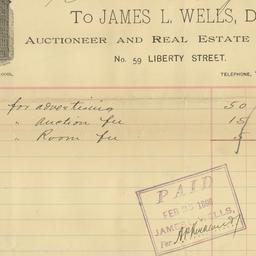 To JAMES L. WELLS, D
AUCTIONEER AND REAL ESTATE
No. 59 LIBERTY STREET.
TELEPHONE,
for advertising 50
" Auction fee 15
" Room fee 5
PAID
FEB 25 189
JAMES L. WELLS,
Per